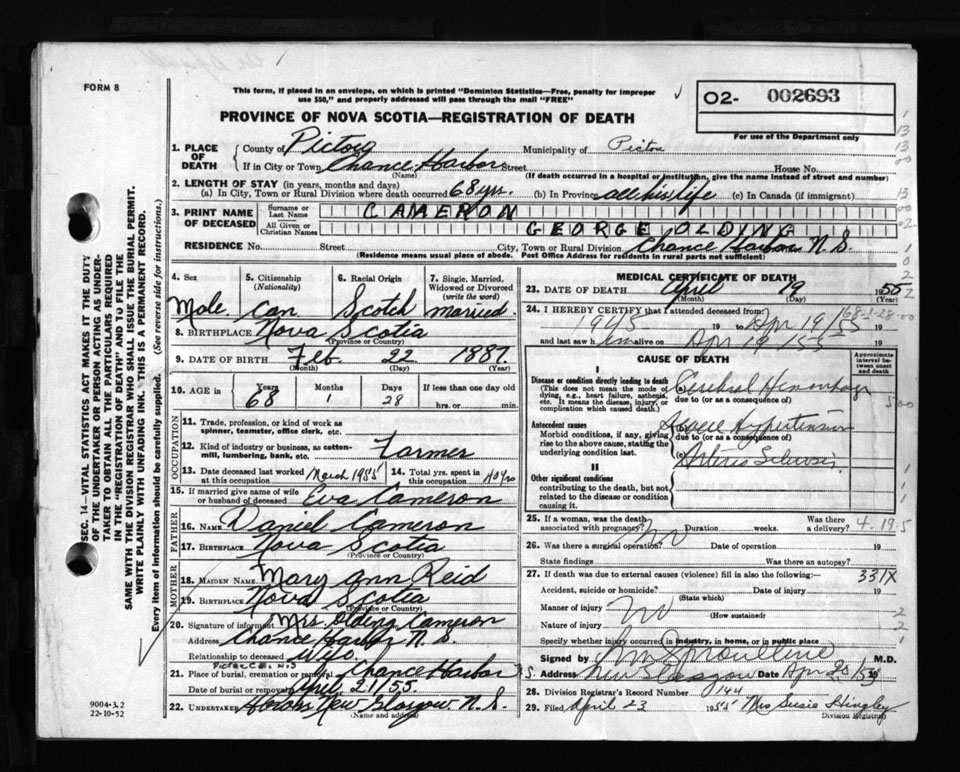 FORM 8
This form, if placed in an envelope, on which is printed "Dominion Statistics—Free, penalty for improper
use $50," and properly addressed will pass through the mail "FREE"
O2- 002693
For use of the Department only
PROVINCE OF NOVA SCOTIA—REGISTRATION OF DEATH
1. PLACE OF DEATH
County of Pictou Municipality of Pictou
If in City or Town Chance Harbor Street House No.
(Name) (If death occurred in a hospital or institution, give the name instead of street and number)
2. LENGTH OF STAY (in years, months and days)
(a) In City, Town or Rural Division where death occurred 68 yrs. (b) In Province all his life (c) In Canada (if immigrant)
3. PRINT NAME OF DECEASED
Surname or Last Name CAMERON
All Given or Christian Names GEORGE OLDING
RESIDENCE No. Street City, Town or Rural Division Chance Harbor N.S.
(Residence means usual place of abode. Post Office Address for residents in rural parts not sufficient)
SEC. 14—VITAL STATISTICS ACT MAKES IT THE DUTY
OF THE UNDERTAKER OR PERSON ACTING AS UNDER-
TAKER TO OBTAIN ALL THE PARTICULARS REQUIRED
IN THE "REGISTRATION OF DEATH" AND TO FILE THE
SAME WITH THE DIVISION REGISTRAR WHO SHALL ISSUE THE BURIAL PERMIT.
WRITE PLAINLY WITH UNFADING INK. THIS IS A PERMANENT RECORD.
Every item of information should be carefully supplied. (See reverse side for instructions.)
4. Sex Male
5. Citizenship (Nationality) Can.
6. Racial Origin Scotch
7. Single, Married, Widowed or Divorced (write the word) married.
8. BIRTHPLACE Nova Scotia
(Province or Country)
9. DATE OF BIRTH Feb. 22 1887.
(Month) (Day) (Year)
10. AGE in Years 68 Months 1 Days 28 If less than one day old hrs. or min.
OCCUPATION
11. Trade, profession, or kind of work as spinner, teamster, office clerk, etc.
12. Kind of industry or business, as cotton-mill, lumbering, bank, etc. Farmer
13. Date deceased last worked at this occupation March 1955
14. Total yrs. spent in this occupation 40 yrs
15. If married give name of wife or husband of deceased Eva Cameron
FATHER
16. NAME Daniel Cameron
17. BIRTHPLACE Nova Scotia
(Province or Country)
MOTHER
18. MAIDEN NAME Mary Ann Reid
19. BIRTHPLACE Nova Scotia
(Province or Country)
20. Signature of informant Mrs. Olding Cameron
Address Chance Harbor N.S.
Relationship to deceased Wife
21. Place of burial, cremation or removal Chance Harbor N.S.
Date of burial or removal April 21/55.
22. UNDERTAKER New Glasgow N.S.
(Name and address)
9004-3.2
22-10-52
MEDICAL CERTIFICATE OF DEATH
23. DATE OF DEATH April 19 1955
(Month) (Day) (Year)
24. I HEREBY CERTIFY that I attended deceased from: 68-1-28-00
1945 19 to Apr 19/55 19
and last saw him alive on Apr 19 155 19
CAUSE OF DEATH
Approximate interval between onset and death
I
Disease or condition directly leading to death
(This does not mean the mode of dying, e.g., heart failure, asthenia, etc. It means the disease, injury, or complication which caused death.)
(a) Cerebral Hemorrhage
due to (or as a consequence of)
Antecedent causes
Morbid conditions, if any, giving rise to the above cause, stating the underlying condition last.
(b) Hypertension
due to (or as a consequence of)
(c) Arterio Sclerosis
II
Other significant conditions
contributing to the death, but not related to the disease or condition causing it.
25. If a woman, was the death associated with pregnancy? No Duration weeks. Was there a delivery? 4.19.5
26. Was there a surgical operation? Date of operation 19
State findings Was there an autopsy?
27. If death was due to external causes (violence) fill in also the following:— 331X
Accident, suicide or homicide? Date of injury 19
(State which)
Manner of injury No
(How sustained)
Nature of injury
Specify whether injury occurred in industry, in home, or in public place
Signed by M.D.
Address New Glasgow Date Apr 20/55 19
28. Division Registrar's Record Number 144
29. Filed April 23 1955 Mrs Susie Hingley
Division Registrar